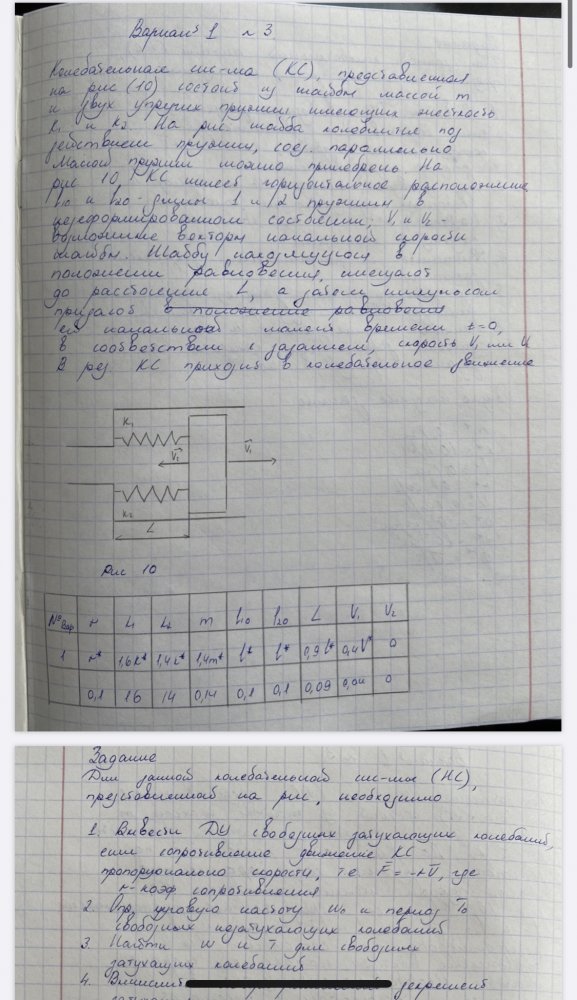 Вариант 1 №3
Колебательная сис-ма (КС), представленная
на рис (10) состоит из шайбы массой m
и двух упругих пружин имеющих жесткость
k₁ и k₂. На рис. шайба колеблется под
действием пружин, соед. параллельно
Массой пружин можно пренебречь На
рис 10 КС имеет горизонтальное расположение
l₁₀ и l₂₀ - длины 1 и 2 пружины в
недеформированном состоянии, V₁ и V₂ -
возможные векторы начальной скорости
шайбы. Шайбу находящуюся в
положении равновесия, смещают
до расстояния L, а затем импульсом
придают в положение равновесия
ей начальный момент времени t=0,
в соответствии с заданием, скорость V₁ или V₂
В рез. КС приходит в колебательное движение
K₁
V₂ V₁
K₂
L
Рис 10
№ вар r m l₁₀ l₂₀ L V₁ V₂
1 r* 1,6k* 1,4k* 1,4m* l* l* 0,9l* 0,4V* 0
0,1 16 14 0,14 0,1 0,1 0,09 0,04 0
Задание
Для данной колебательной сис-мы (КС),
представленной на рис, необходимо
1. Вывести ДУ свободных затухающих колебаний,
если сопротивление движению КС
пропорционально скорости, те F = -rV, где
r - коэф сопротивления
2. Опр, угловую частоту ω₀ и период T₀
свободных незатухающих колебаний
3. Найти ω и T для свободных
затухающих колебаний
4. декремент